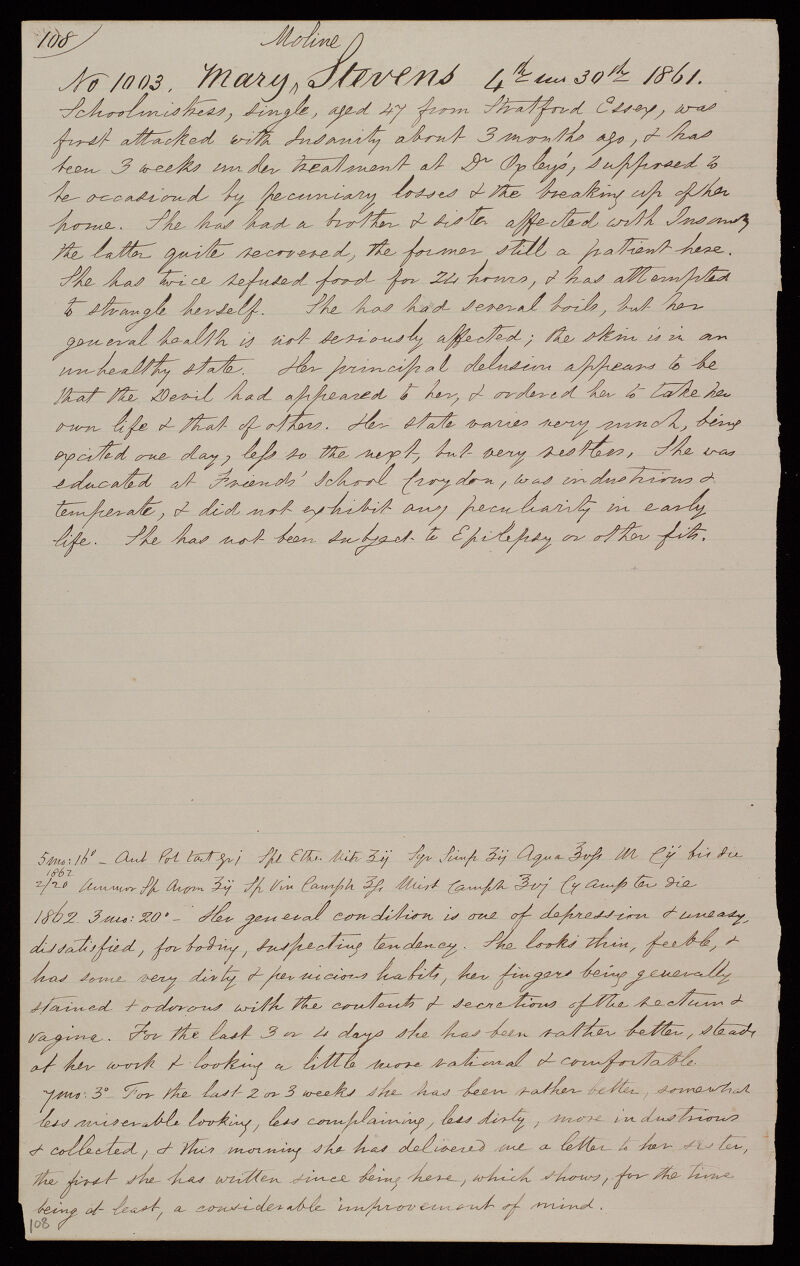 108
Moline
No 1003. Mary, Stevens 4th mo 30th 1861.
Schoolmistress, single, aged 47 from Stratford Essex, was
first attacked with Insanity about 3 months ago, & has
been 3 weeks under treatment at Dr Oxley's, supposed to
be occasiond by pecuniary losses & the breaking up of her
home. She has had a brother & sister affected with Insanity
the latter quite recovered, the former still a patient here.
She has twice refused food for 24 hours, & has attempted
to strangle herself. She has had several boils, but her
general health is not seriously affected; the skin is in an
unhealthy state. Her principal delusion appears to be
that the Devil had appeared to her, & ordered her to take her
own life & that of others. Her state varies very much, being
excited one day, less so the next, but very restless. She was
educated at Friends' School Croydon, was industrious &
temperate, & did not exhibit any peculiarity in early
life. She has not been subject to Epilepsy or other fits.
5 mo: 16° - Ant Pot tart gr j Spt Ether Nitr ʒij Syr Simp ʒij Aqua ℥vſs M Cy bis die
1862
2/20 Ammon Sp Arom ʒij Sp Vin Camph ʒſs Mist Camph ℥vj Cy amp ter die
1862. 3 mo: 20° - Her general condition is one of depression & uneasy,
dissatisfied, forboding, suspecting tendency. She looks thin, feeble, &
has some very dirty & pernicious habits, her fingers being generally
stained & odorous with the contents & secretions of the rectum &
vagina. For the last 3 or 4 days she has been rather better, steady
at her work & looking a little more rational & comfortable
7mo: 3° For the last 2 or 3 weeks she has been rather better, somewhat
less miserable looking, less complaining, less dirty, more industrious
& collected, & this morning she has delivered me a letter to her sister,
the first she has written since being here, which shows, for the time
being at least, a considerable improvement of mind.
108